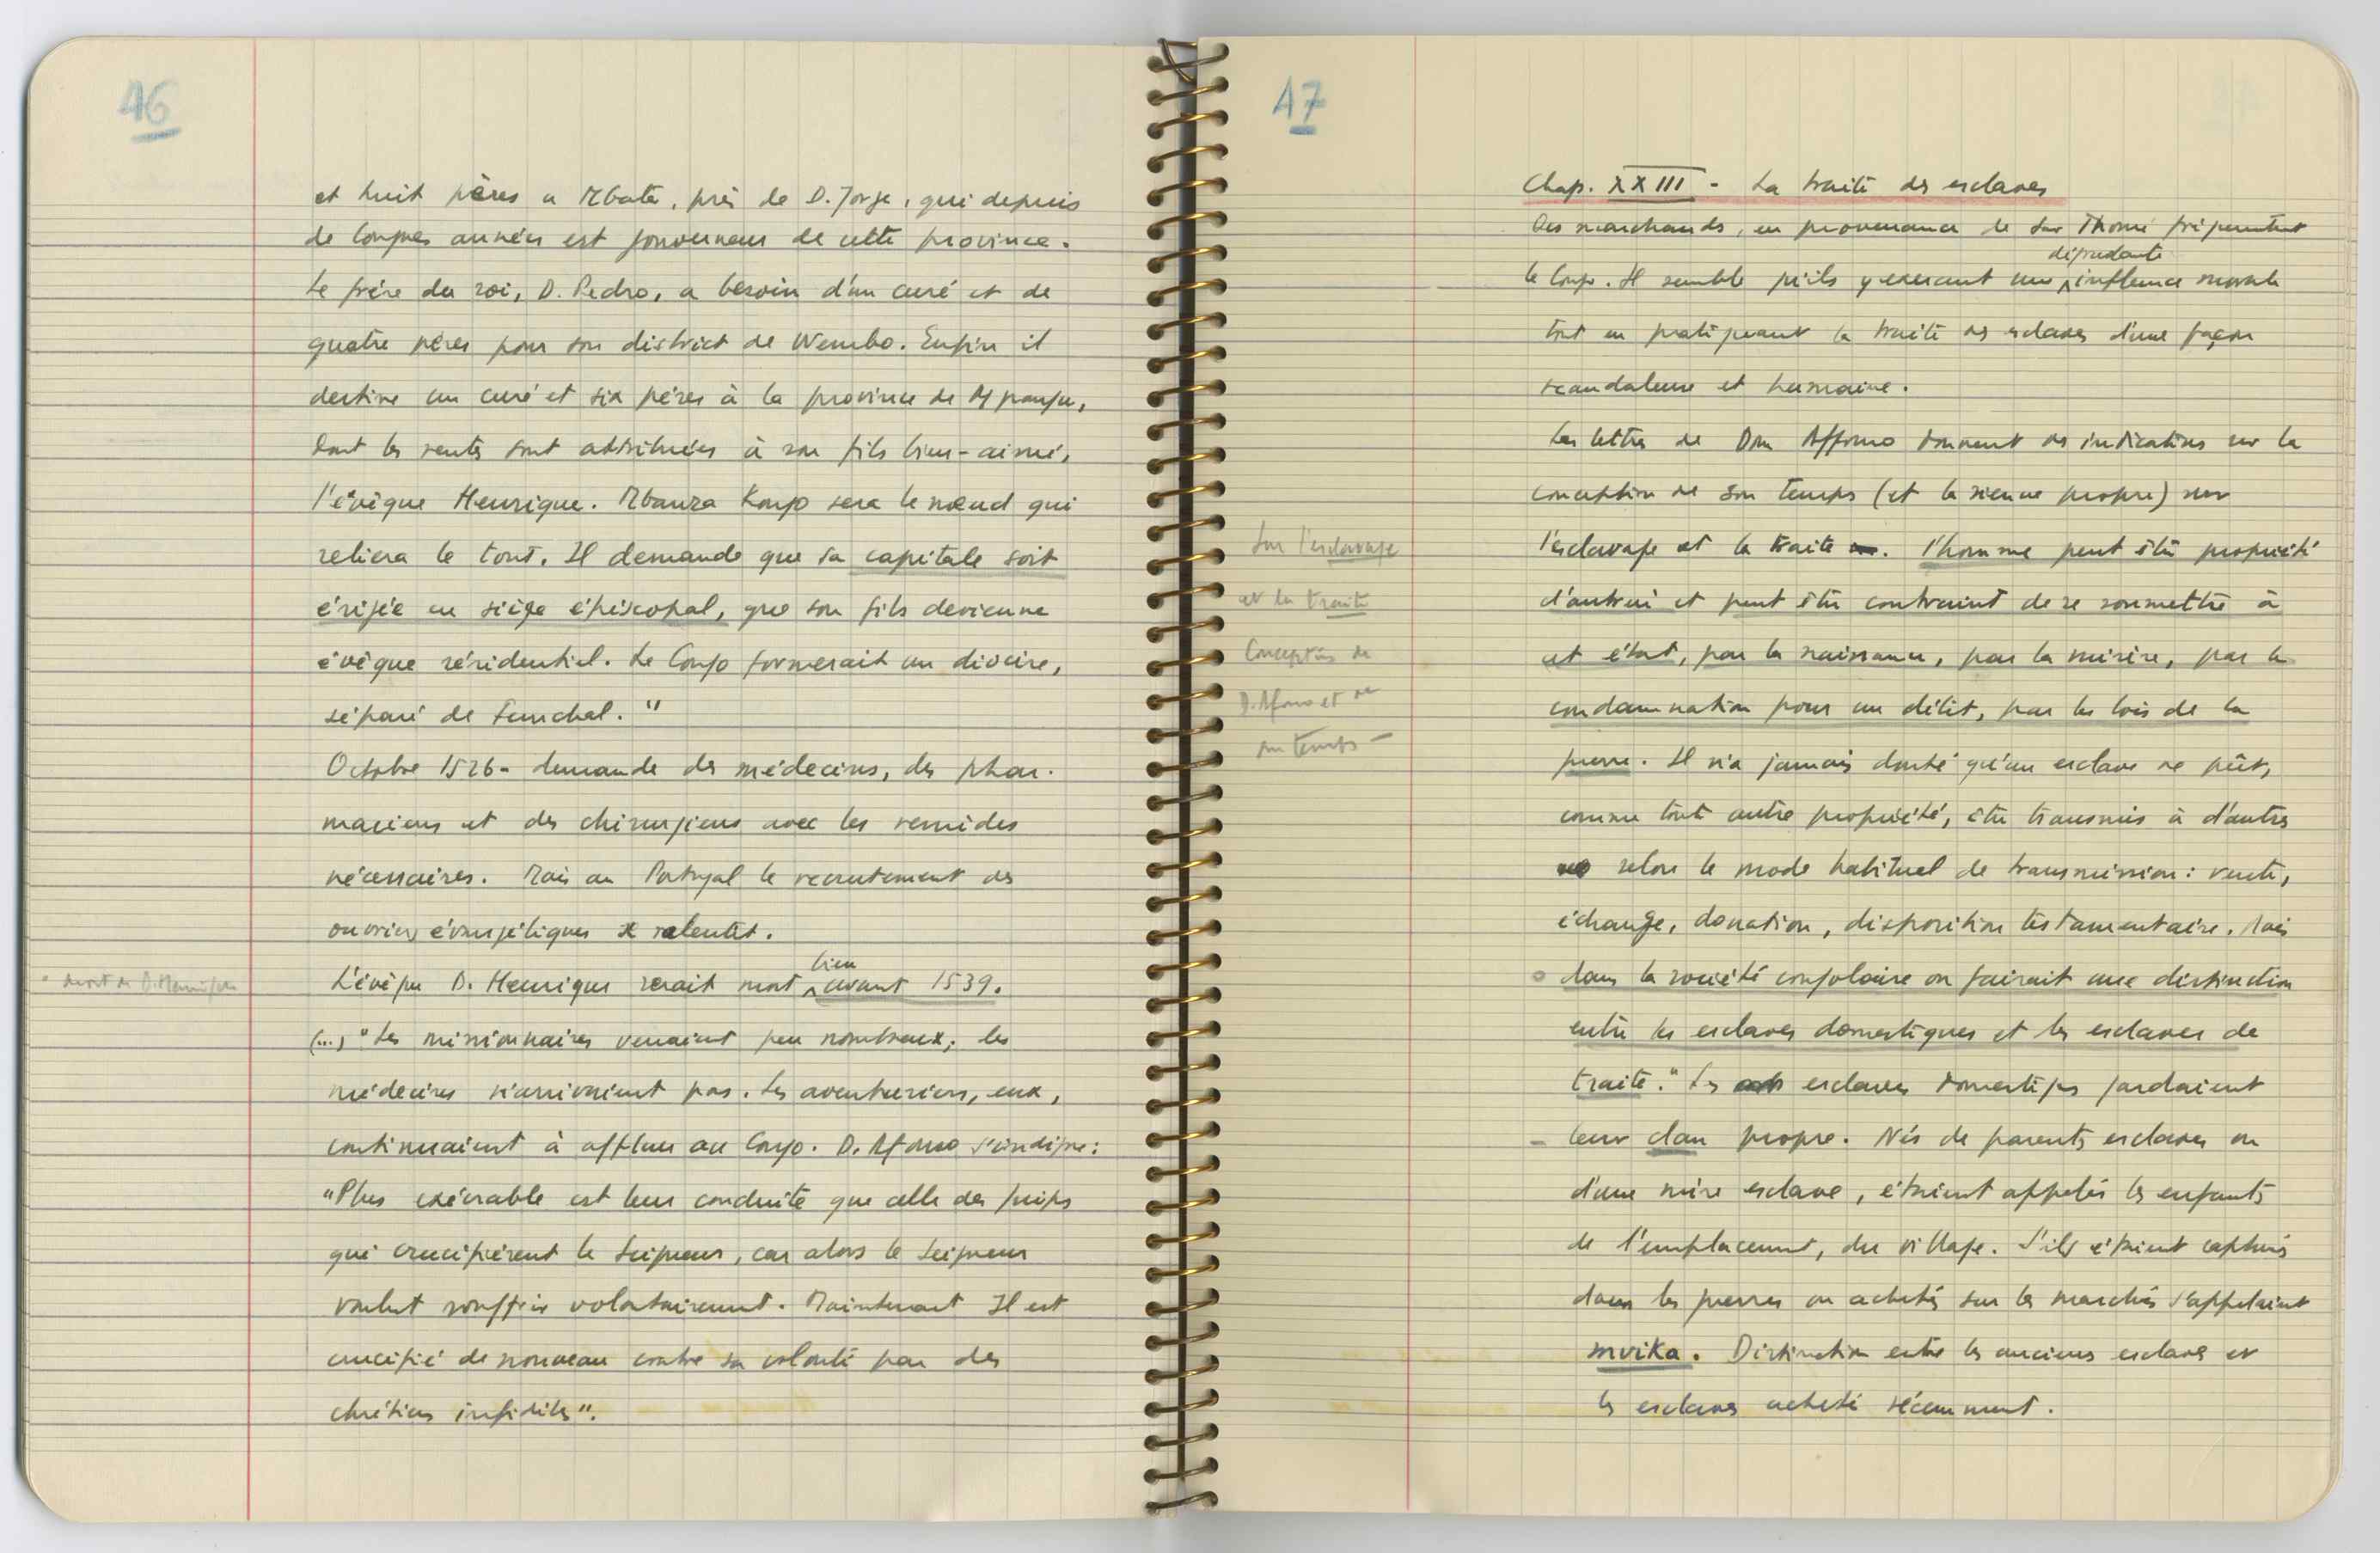 46
et huit pères a Mbata, près de D. Jorge, qui depuis
de longues années est gouverneur de cette province.
Le frère du roi, D. Pedro, a besoin d'un curé et de
quatre pères pour son district de Wembo. Enfin il
destine un curé et six pères à la province de Mpangu,
dont les rentes sont attribuées à son fils bien-aimé,
l'évêque Henrique. Mbanza Kongo sera le nœud qui
reliera le tout. Il demande que sa capitale soit
érigée en siège épiscopal, que son fils devienne
évêque résidentiel. Le Congo formerait un diocèse,
séparé de Funchal."
Octobre 1526 - demande des médecins, des phar-
maciens et des chirurgiens avec les remèdes
nécessaires. Mais au Portugal le recrutement des
ouvriers évangéliques se ralentit.
• mort de D. Henrique
L'évêque D. Henrique serait mort bien avant 1539.
(...) "Les missionnaires venaient peu nombreux; les
médecins n'arrivaient pas. Les aventuriers, eux,
continuaient à affluer au Congo. D. Afonso s'indigne:
"Plus exécrable est leur conduite que celle des juifs
qui crucifièrent le Seigneur, car alors le Seigneur
voulut souffrir volontairement. Maintenant Il est
crucifié de nouveau contre sa volonté par des
chrétiens infidèles".
47
Chap. XXIII - La traite des esclaves
Des marchands, en provenance de Sao Thomé fréquentent
le Congo. Il semble qu'ils y exercent une dégradante influence morale
tout en pratiquant la traite des esclaves d'une façon
scandaleuse et humaine.
Les lettres de Dom Affonso donnent des indications sur la
conception de son temps (et la sienne propre) sur
l'esclavage et la traite. l'homme peut être propriété
d'autrui et peut être contraint de se soumettre à
cet état, par la naissance, par la misère, par la
condamnation pour un délit, par les lois de la
guerre. Il n'a jamais douté qu'un esclave ne pût,
comme toute autre propriété, être transmis à d'autres
selon le mode habituel de transmission: vente,
échange, donation, disposition testamentaire. Mais
dans la société congolaise on faisait une distinction
entre les esclaves domestiques et les esclaves de
traite." Les esclaves domestiques gardaient
- leur clan propre. Nés de parents esclaves ou
d'une mère esclave, étaient appelés les enfants
de l'emplacement, du village. S'ils étaient capturés
dans les guerres ou achetés sur les marchés s'appelaient
mvika. Distinction entre les anciens esclaves et
les esclaves acheté récemment.
Sur l'esclavage
et la traite
Conception de
D. Afonso et de
son temps -